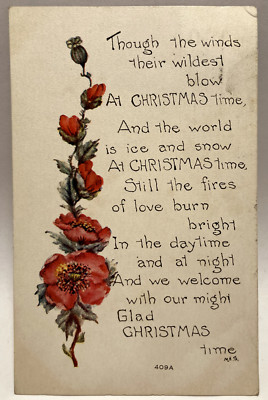 Though the winds
their wildest
blow
At CHRISTMAS time,
And the world
is ice and snow
At CHRISTMAS time.
Still the fires
of love burn
bright
In the daytime
and at night
And we welcome
with our might
Glad
CHRISTMAS
time
409A